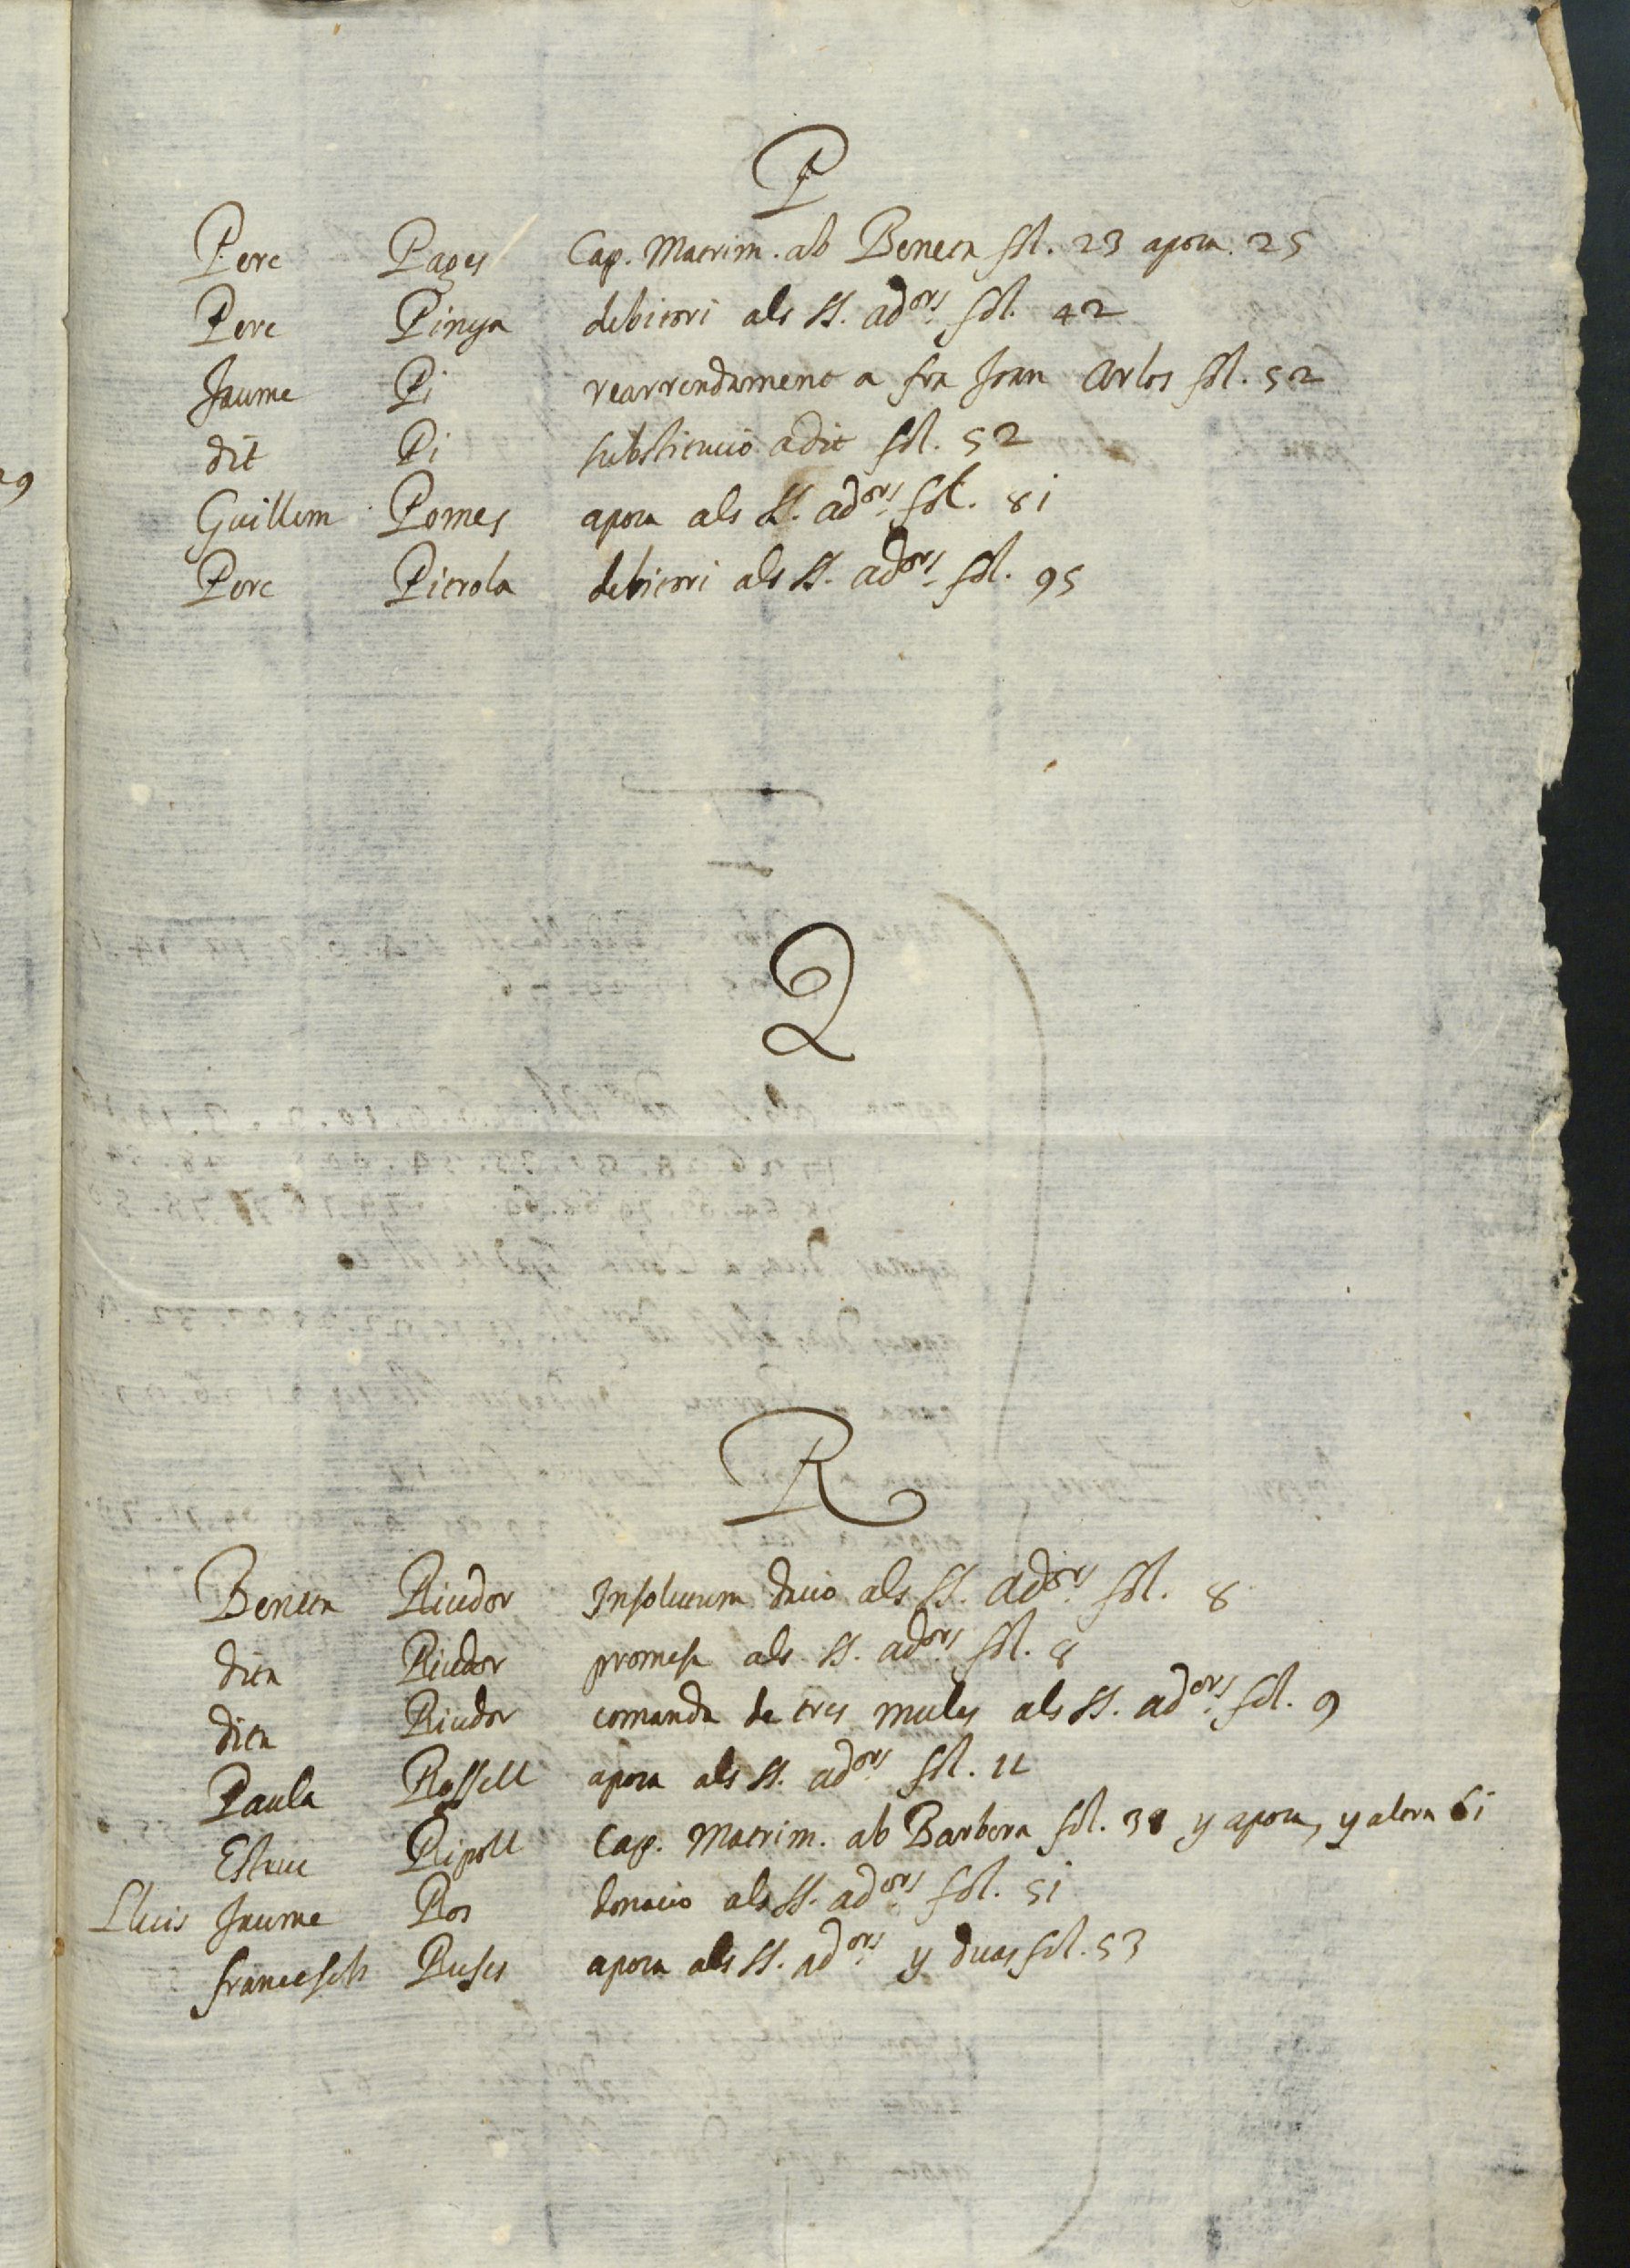 P
Pere Pages Cap. Matrim. ab Beneta fol. 23 apoca 25
Pere Pinya debitori als SS. ad.ors fol. 42
Jaume Pi rearrendament a fra Joan Carlos fol. 52
dit Pi substitucio a dit fol. 52
Guillem Pomes apoca als SS. ad.ors fol. 81
Pere Pierola debitori als SS. ad.ors fol. 95
Q
R
Beneta Riudor Insolutum dacio als SS. ad.ors fol. 8
dita Riudor promesa als SS. ad.ors fol. 8
dita Riudor comanda de tres mules als SS. ad.ors fol. 9
Paula Rossell apoca als SS. ad.ors fol. 11
Esteve Ripoll Cap. Matrim. ab Barbera fol. 38 y apoca, y altra 61
Lluis Jaume Ros donacio als SS. ad.ors fol. 51
francesch Ruses apoca als SS. ad.ors y duas fol. 53